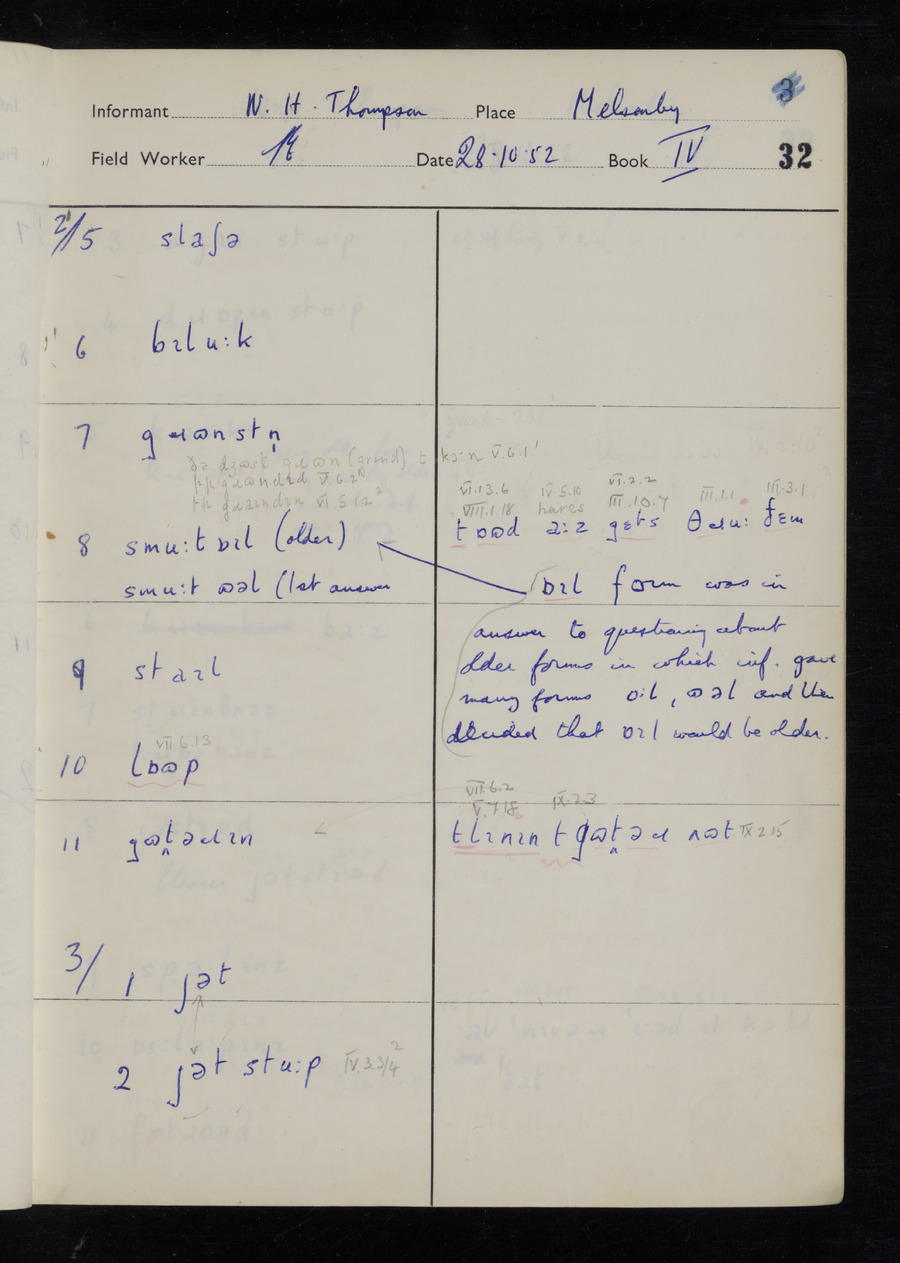 3
Informant W. H. Thompson Place Melsonby
Field Worker Date 28·10·52 Book IV 32
2/5 slaʃə
6 bɪlu:k
7 gɹɷnstn̩
(grind) t kɔ:n V.6.1
V.6.2
VI.5.12
VI.13.6 IV.5.10 VI.2.2
VIII.1.18 hares III.10.7 III.1.1 III.3.1
8 smu:t ɒɪl (older) t ɒɷd a:z gɛts θɹu: ðɛm
smu:t ɷəl (1st answer
ɒɪl form was in
answer to questioning about
older forms in which inf. gave
many forms ɒil, ɷəl and then
decided that ɒɪl would be older.
9 staɪl
VII.6.13
10 lɒɷp
VII.6.2
V.7.18 IX.2.3
11 gɷt̪əɹɪn tlɪnɪn t gɷt̪əɹ ʌɷt IX.2.15
3/ 1 jət
2 jət stu:p IV.3.3/4 2